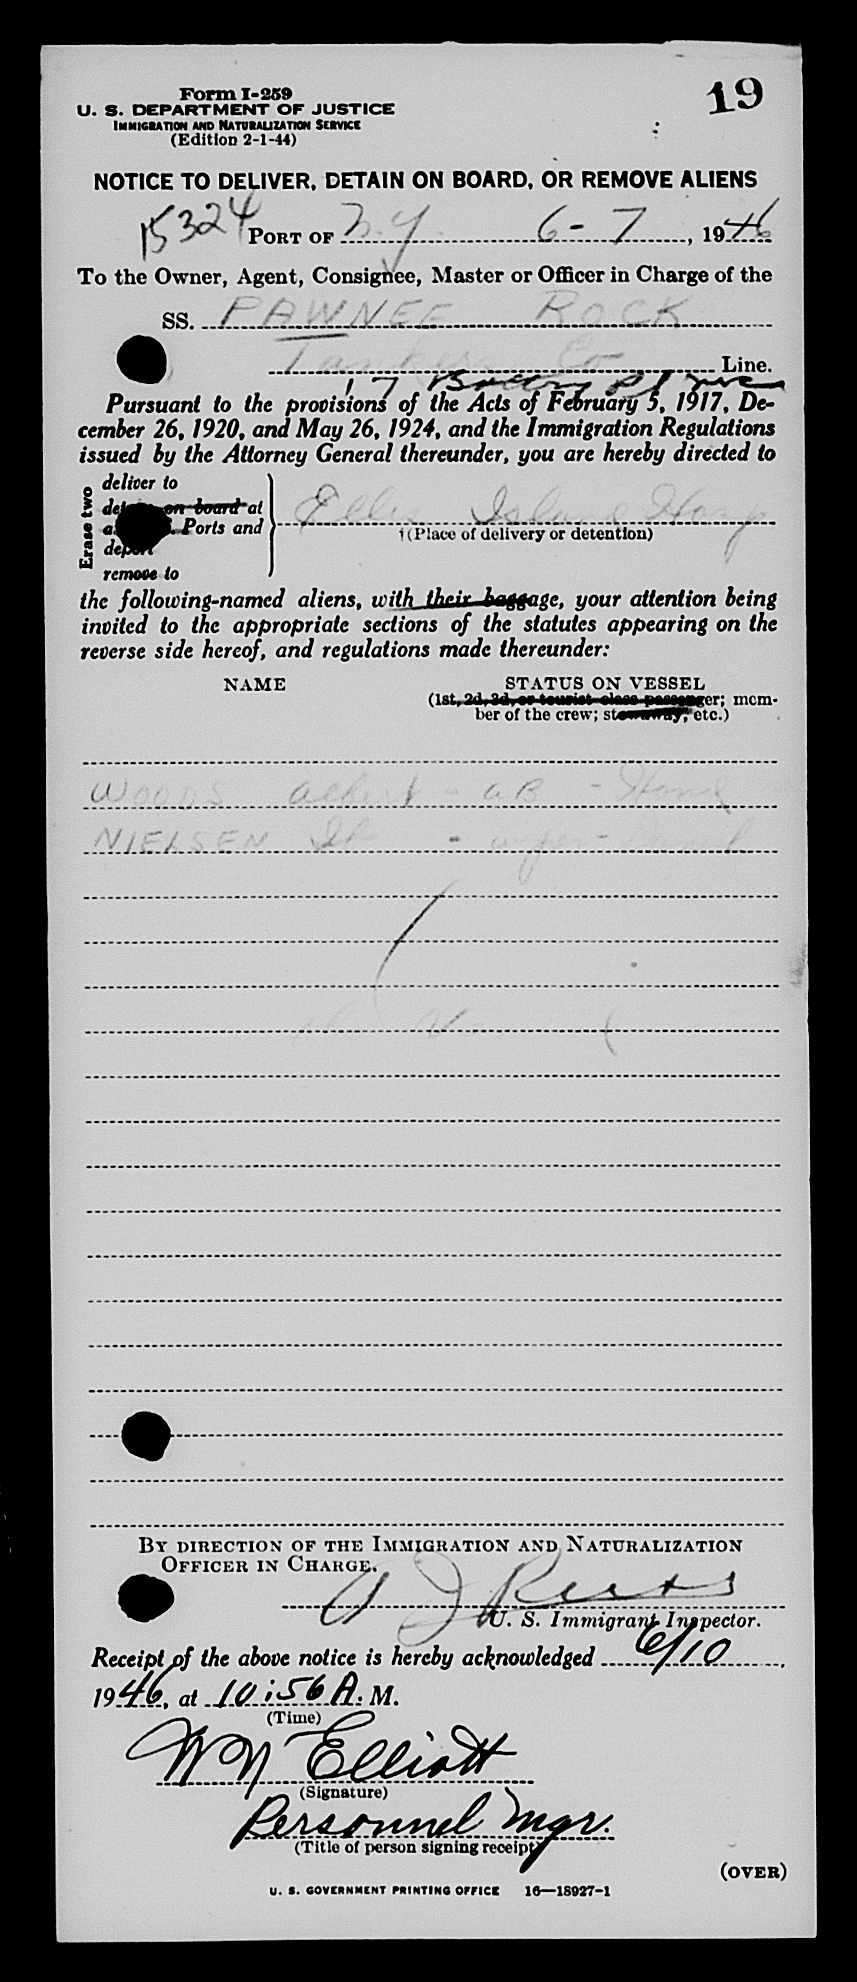 Form I-259
19
U. S. DEPARTMENT OF JUSTICE
IMMIGRATION AND NATURALIZATION SERVICE
(Edition 2-1-44)
NOTICE TO DELIVER, DETAIN ON BOARD, OR REMOVE ALIENS
15324 PORT OF N.Y. 6-7, 1946
To the Owner, Agent, Consignee, Master or Officer in Charge of the
SS. PAWNEE ROCK
Tankers Co Line.
17 Battery Place
Pursuant to the provisions of the Acts of February 5, 1917, De-
cember 26, 1920, and May 26, 1924, and the Immigration Regulations
issued by the Attorney General thereunder, you are hereby directed to
Erase two
deliver to
on board at
Ports and
deport
remove to
Ellis Island Hosp
†(Place of delivery or detention)
the following-named aliens, with their baggage, your attention being
invited to the appropriate sections of the statutes appearing on the
reverse side hereof, and regulations made thereunder:
NAME STATUS ON VESSEL
(1st, 2d, 3d, or tourist class passenger; mem-
ber of the crew; stowaway, etc.)
WOODS Albert - AB -
NIELSEN -
BY DIRECTION OF THE IMMIGRATION AND NATURALIZATION
OFFICER IN CHARGE.
A J
U. S. Immigrant Inspector.
Receipt of the above notice is hereby acknowledged 6/10,
1946, at 10:56 A. M.
(Time)
W N Elliott
(Signature)
Personnel Mgr.
(Title of person signing receipt)
(OVER)
U. S. GOVERNMENT PRINTING OFFICE 16—18927-1